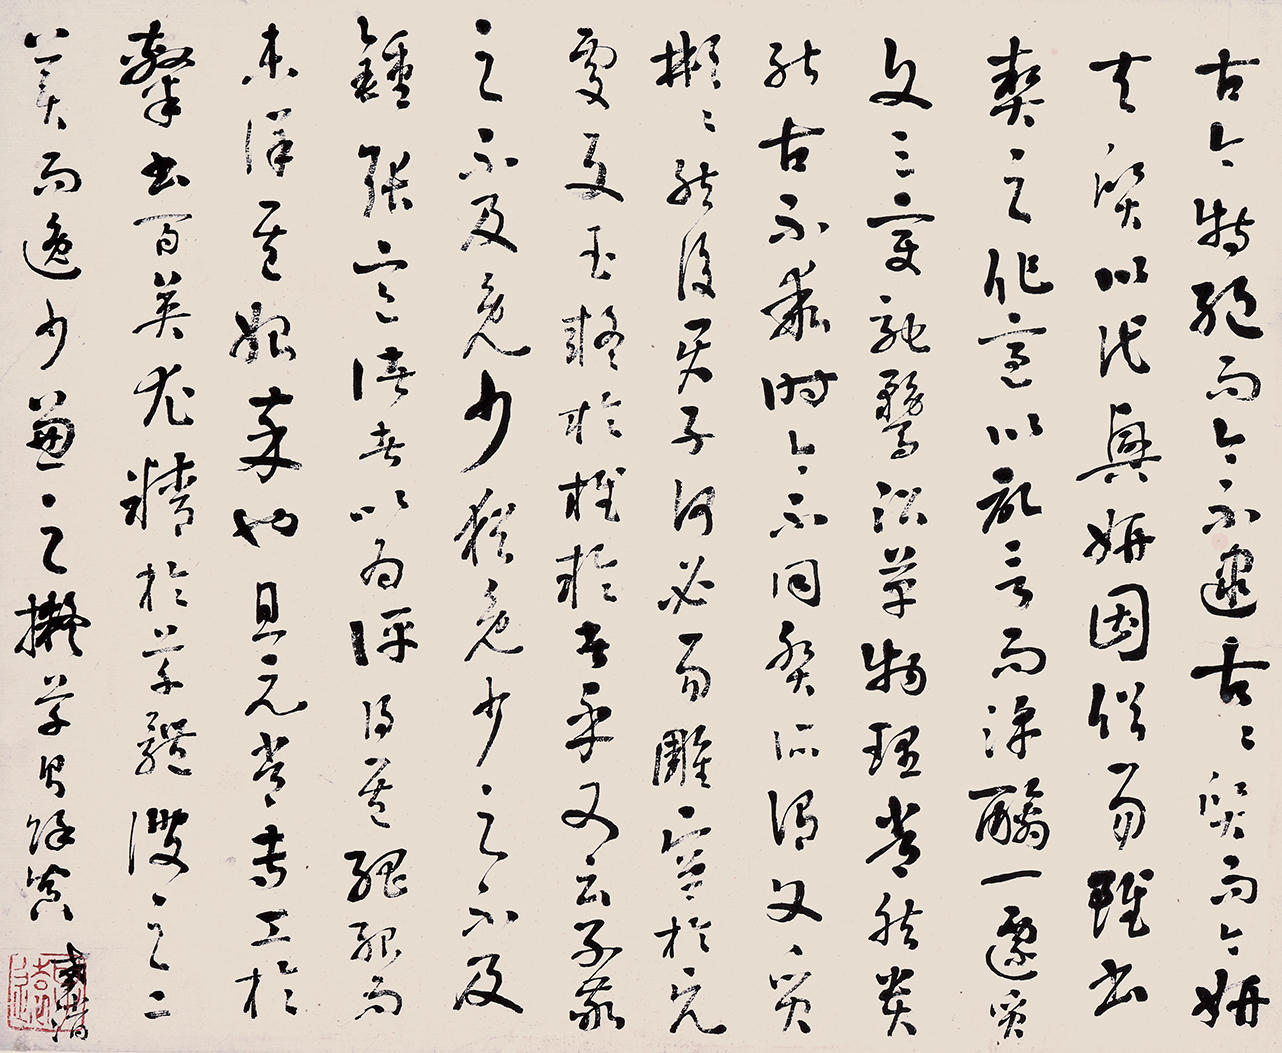 古今特絕而今不逮古〻質而今妍
夫質以代興妍因俗易雖書
契之作適以記言而淳醨一遷質
文三變馳騖沿革物理常然貴
能古不乖時今不同弊所謂文質
彬〻然後君子何必易雕宮於穴
處反玉輅於椎輪者乎又云子敬
之不及逸少猶逸少之不及
鍾張意者以為評得其綱紀而
未詳其始卒也且元常專工於
隸書百英尤精於草體彼之二
美而逸少兼之擬草則餘真